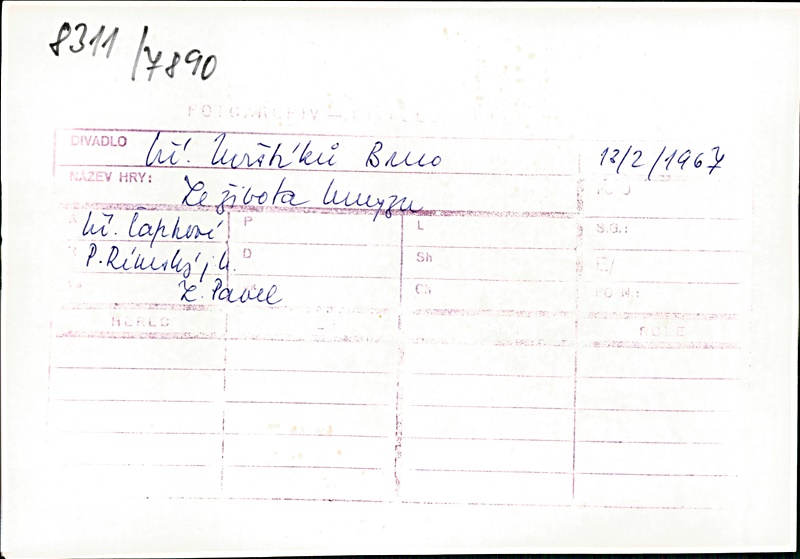 8311/7890
FOTOARCHIV —
DIVADLO bř. Mrštíků Brno 13/2/1967
NÁZEV HRY: Ze života hmyzu
A bř. Čapkové P L S.G.:
P. Rímský, D Sh
Z. Pavel Ch
HEREC ROLE